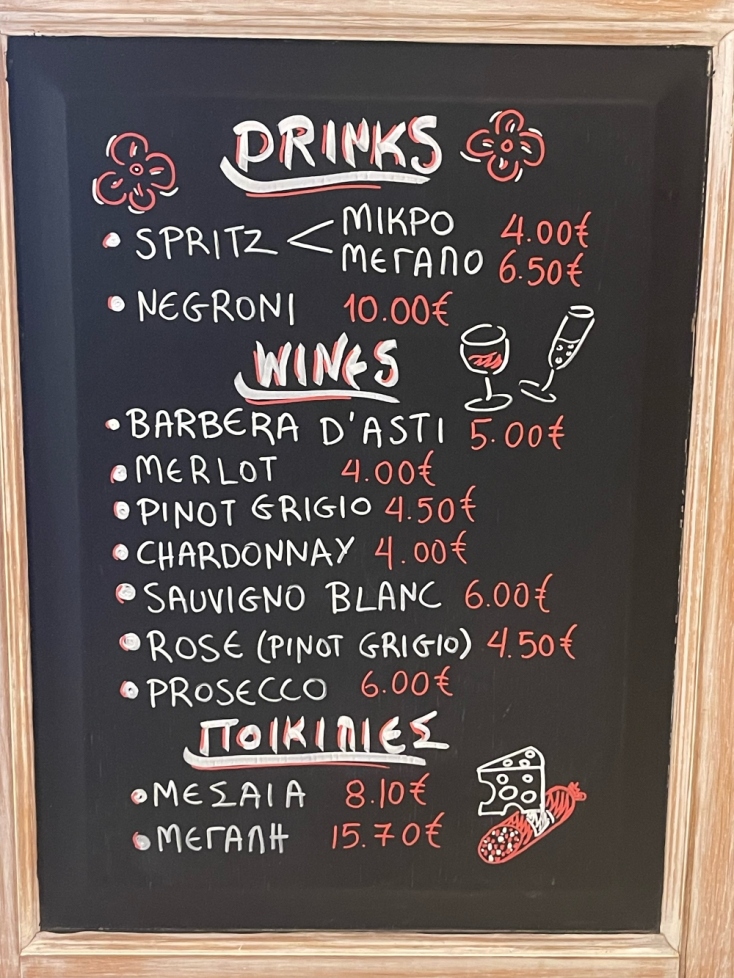 DRINKS
• SPRITZ < ΜΙΚΡΟ 4.00€
ΜΕΓΑΛΟ 6.50€
• NEGRONI 10.00€
WINES
• BARBERA D'ASTI 5.00€
• MERLOT 4.00€
• PINOT GRIGIO 4.50€
• CHARDONNAY 4.00€
• SAUVIGNO BLANC 6.00€
• ROSE (PINOT GRIGIO) 4.50€
• PROSECCO 6.00€
ΠΟΙΚΙΛΙΕΣ
• ΜΕΣΑΙΑ 8.10€
• ΜΕΓΑΛΗ 15.70€